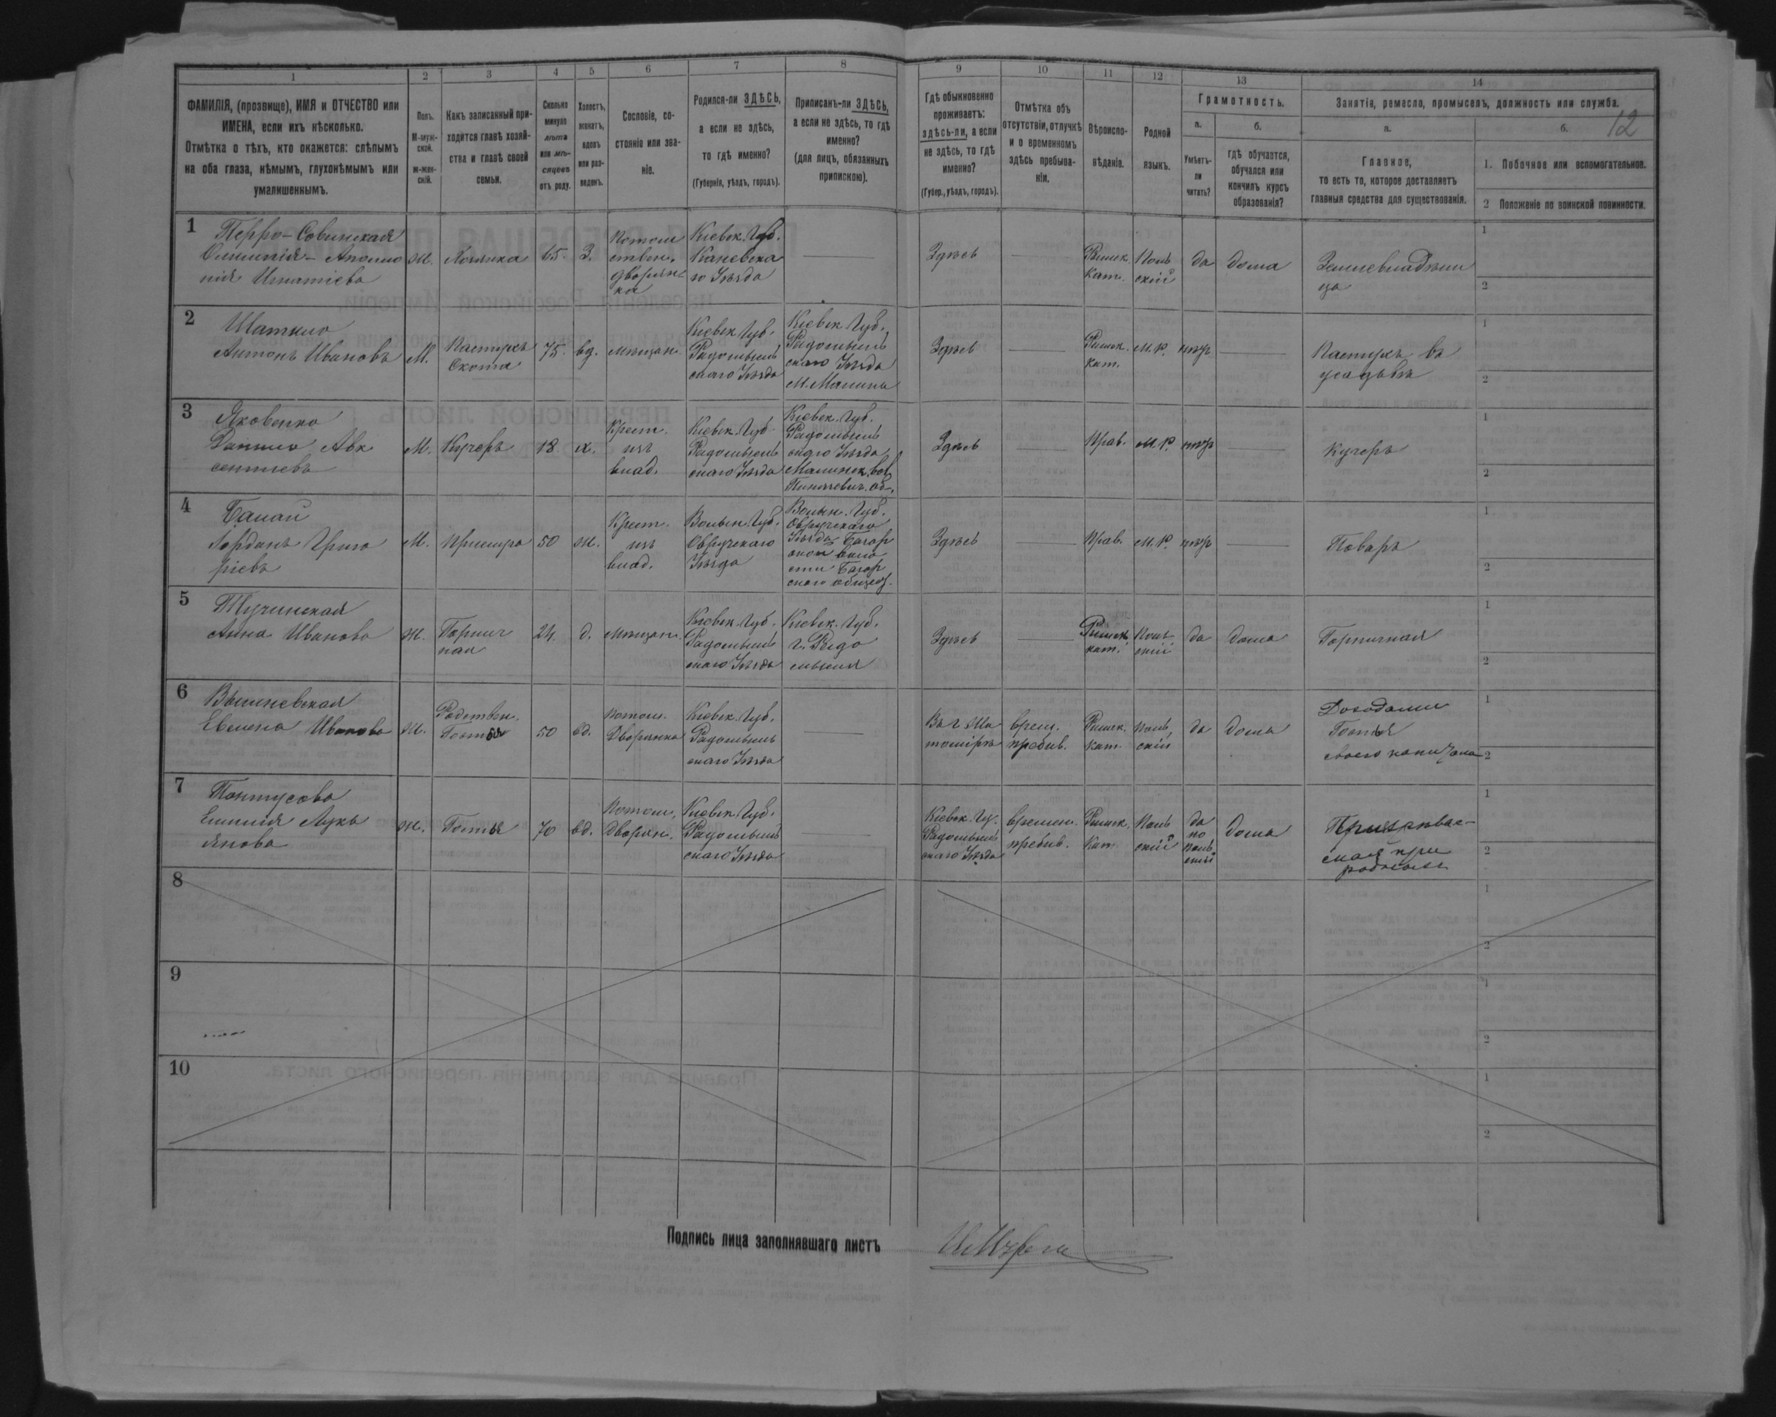 1 2 3 4 5 6 7 8 9 10 11 12 13 14
12
ФАМИЛІЯ, (прозвище), ИМЯ и ОТЧЕСТВО или
ИМЕНА, если ихъ нѣсколько.
Отмѣтка о тѣхъ, кто окажется: слѣпымъ
на оба глаза, нѣмымъ, глухонѣмымъ или
умалишеннымъ.
Полъ.
М-муж-
ской.
ж-жен-
скій.
Какъ записанный при-
ходится главѣ хозяй-
ства и главѣ своей
семьи.
Сколько
минуло
лѣтъ
или мѣ-
сяцевъ
отъ роду.
Холостъ,
женатъ,
вдовъ
или раз-
веденъ.
Сословіе, со-
стояніе или зва-
ніе.
Родился-ли ЗДѢСЬ,
а если не здѣсь,
то гдѣ именно?
(Губернія, уѣздъ, городъ).
Приписанъ-ли ЗДѢСЬ,
а если не здѣсь, то гдѣ
именно?
(для лицъ, обязанныхъ
припискою).
Гдѣ обыкновенно
проживаетъ:
здѣсь-ли, а если
не здѣсь, то гдѣ
именно?
(Губер., уѣздъ, городъ).
Отмѣтка объ
отсутствіи, отлучкѣ
и о временномъ
здѣсь пребыва-
ніи.
Вѣроиспо-
вѣданіе.
Родной
языкъ.
Грамотность.
а.
Умѣетъ-
ли
читать?
б.
гдѣ обучается,
обучался или
кончилъ курсъ
образованія?
Занятія, ремесло, промыселъ, должность или служба.
а.
Главное,
то есть то, которое доставляетъ
главныя средства для существованія.
б.
1. Побочное или вспомогательное.
2 Положеніе по воинской повинности.
1
Перро-Савинская
Игнатіева
ж.
65
З.
Потом
ствен.
дворян
ка
Кіевск. Губ.
Каневска
го Уѣзда
Здѣсь
Римск.
Кат.
Поль
скій
да
дома
Землевладѣли
ца
1
2
2
Шатило
Антонъ Ивановъ
М.
Пастухъ
Скота
75.
вд.
мѣщан.
Кіевск. Губ.
Радомысль
скаго Уѣзда
Кіевск. Губ.
Радомысль
скаго Уѣзда
м. Малина
Здѣсь
Римск.
кат.
м. р.
нѣтъ
Пастухъ въ
усадьбѣ
1
2
3
Яковенко
Данило Авк
сентіевъ
М.
Кучеръ
18
х.
Крест.
изъ
влад.
Кіевск. Губ.
Радомысль
скаго Уѣзда
Кіевск. Губ.
Радомысль
скаго Уѣзда
Малинск. вол.
Здѣсь
Прав.
м. р.
нѣтъ
Кучеръ
1
2
4
Іорданъ Григо
ріевъ
М.
50
ж.
Крест.
изъ
влад.
Волын. Губ.
Овручскаго
Уѣзда
Волын. Губ.
Овручскаго
Уѣзда
Здѣсь
Прав.
м. р.
нѣтъ
Поваръ
1
2
5
Анна Иванова
ж.
Горнич
ная
24.
д.
Мѣщан.
Кіевск. Губ.
Радомысль
скаго Уѣзда
Кіевск. Губ.
г. Радо
мысля
Здѣсь
Римск.
кат.
Поль
скій
да
дома
Горничная
1
2
6
Вышневская
Евелина Иванова
ж.
Родствен.
Гостья
50
вд.
Потом.
Дворянка
Кіевск. Губ.
Радомысль
скаго Уѣзда
Въ г. Жи
томірѣ
врем.
пребыв.
Римск.
Кат.
Поль
скій
да
дома
Доходами
своего капитала
1
2
7
Емилія Лукь
янова
ж.
Гостья
70
вд.
Потом.
Дворян.
Кіевск. Губ.
Радомысль
скаго Уѣзда
Кіевск. Гу.
Радомысль
скаго Уѣзда
времен.
пребыв.
Римск.
Кат
Поль
скій
да
по
поль
скі
дома
при
1
2
8
1
2
9
1
2
10
1
2
Подпись лица заполнявшаго листъ